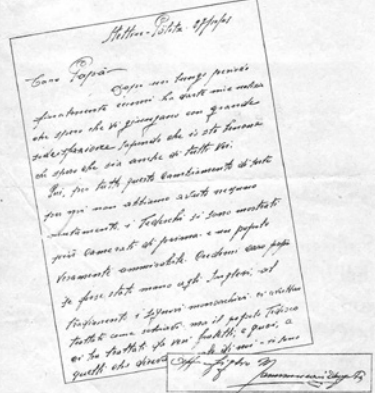 Stettin - Pölitz
Caro Papà
Dopo un lungo periodo
finalmente eccomi a darle mie notizie
che spero che vi giungano con grande
sodisfazione sapendo che io sto benone
che spero che sia anche di tutti voi.
Qui, per tutti questi cambiamenti di
per qui non abbiamo avuto nessuno
i Tedeschi si sono mostrati
più Camerati di prima e un popolo
veramente ammirabile. Credimi caro papà
Se fosse stati mano agli Inglesi al
i Signori monarchici ci
trattati come schiavi ma il popolo Tedesco
ci ha trattati da veri fratelli, e guai, a
quelli che di noi - vi sono
figlio